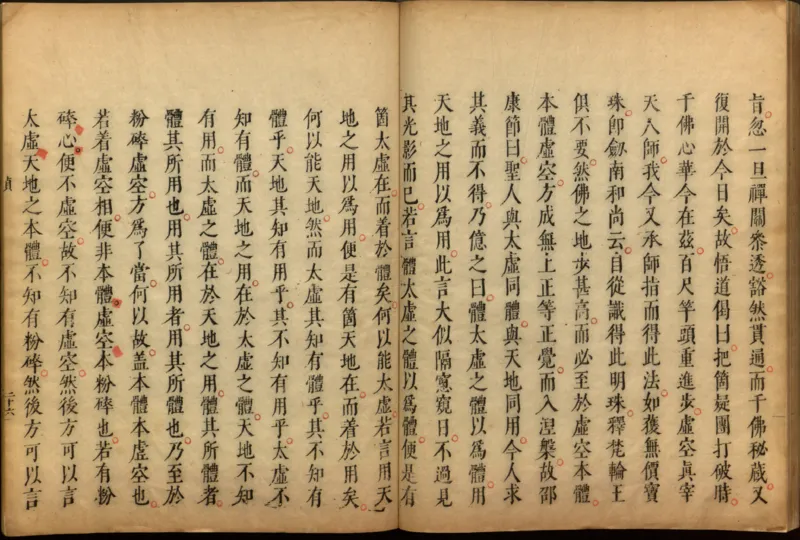 旨忽一旦禪關參透豁然貫通而千佛秘藏又
復開於今日矣故悟道偈曰把箇疑團打破時
千佛心華今在茲百尺竿頭重進步虛空真宰
天人師我今又承師指而得此法如獲無價寶
珠卽劒南和尚云自從識得此明珠釋梵輪王
俱不要然佛之地步甚高而必至於虛空本體
本體虛空方成無上正等正覺而入涅槃故邵
康節曰聖人與太虛同體與天地同用今人求
其義而不得乃億之曰體太虛之體以為體用
天地之用以為用此言大似隔窻窺日不過見
其光影而已若言體太虛之體以為體便是有
箇太虛在而着於體矣何以能太虛若言用天
地之用以為用便是有箇天地在而着於用矣
何以能天地然而太虛其知有體乎其不知有
體乎天地其知有用乎其不知有用乎太虛不
知有體而天地之用在於太虛之體天地不知
有用而太虛之體在於天地之用體其所體者
體其所用也用其所用者用其所體也乃至於
粉碎虛空方為了當何以故蓋本體本虛空也
若着虛空相便非本體虛空本粉碎也若有粉
碎心便不虛空故不知有虛空然後方可以言
太虛天地之本體不知有粉碎然後方可以言
貞
二十六